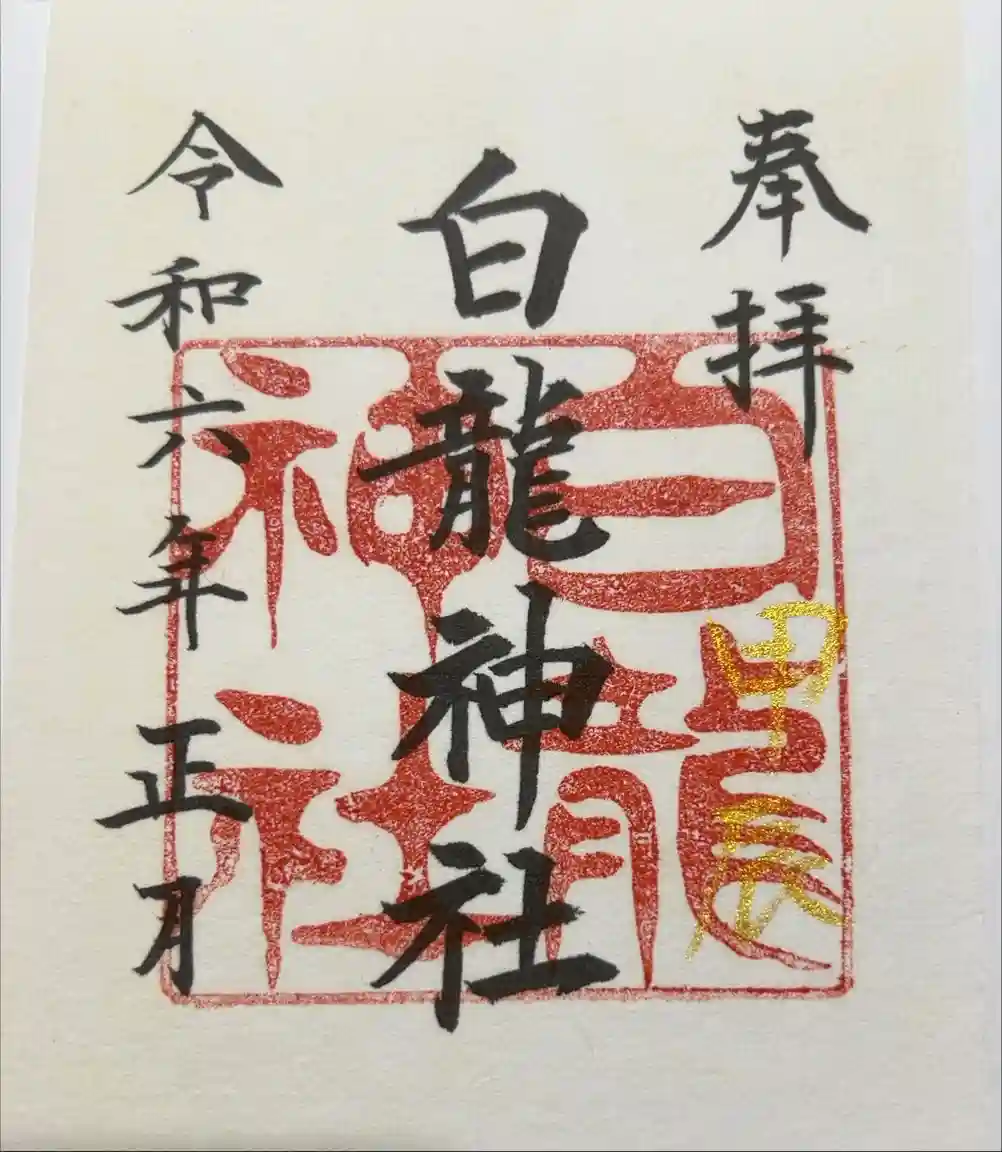 奉拝
甲辰
白龍神社
白龍神社
令和六年正月